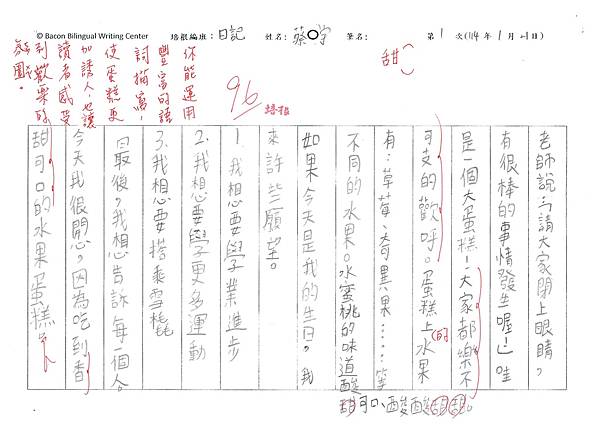 © Bacon Bilingual Writing Center
培根編班：日記
姓名：蔡○宇
筆名：
第1次(114年1月21日)
老師說：「請大家閉上眼睛，
有很棒的事情發生喔！」哇
是一個大蛋糕！大家都樂不
可支的歡呼。蛋糕上(的)水果
有：草莓、奇異果……等
不同的水果。水蜜桃的味道酸
甜可口、酸酸甜甜。
如果今天是我的生日，我
來許些願望。
1.我想要學業進步
2.我想要學更多運動
3.我想要搭乘雪橇
最後，我想告訴每一個人
今天我很開心，因為吃到香
甜可口的水果蛋糕
甜
96
培根
你能運用
豐富的語
詞描寫，
使蛋糕更
加誘人，也讓
讀者感受
到歡樂的
氛圍。